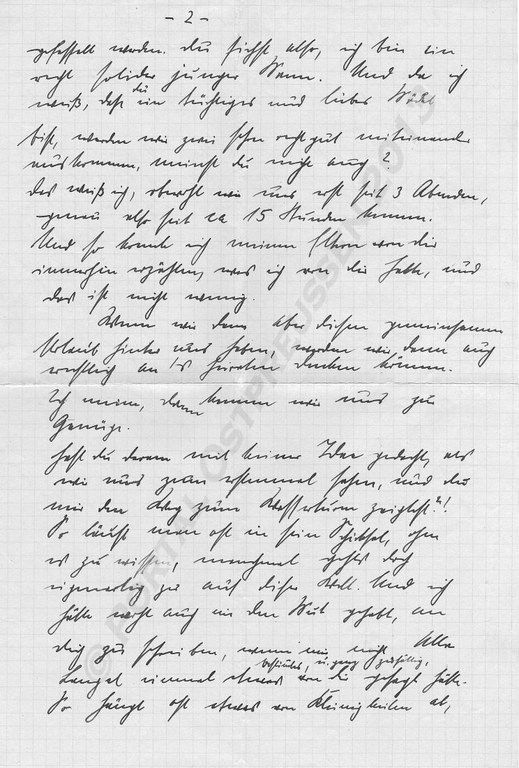 - 2 -
gefesselt worden. Du siehst also, ich bin ein
recht solider junger Mann. Und da ich
weiß, daß du ein tüchtiges und liebes Mädel
bist, werden wir zwei sehr recht gut miteinander
auskommen, meinst du nicht auch?
Das weiß ich, obwohl wir uns erst seit 3 Abenden,
genau also seit ca 15 Stunden kennen.
Und so konnte ich meinen Eltern von dir
immerhin erzählen, was ich von dir halte, und
das ist nicht wenig.
Wenn wir dann aber diesen gemeinsamen
Urlaub hinter uns haben, werden wir dann auch
wirklich an's Heiraten denken können.
Ich meine, dann kennen wir uns zur
Genüge.
Hast du daran mit keiner Idee gedacht, als
wir uns zum erstenmal sahen, und du
mir den Weg zum Wasserturm zeigtest"!
So läuft man oft in sein Schicksal, ohne
es zu wissen, manchmal geht's doch
eigenartig zu auf dieser Welt. Und ich
hätte wohl auch nie den Mut gehabt, an
dich zu schreiben, wenn mir nicht Alla
bestimmt, u. ganz zufällig,
Langel einmal etwas von dir gesagt hätte.
So hängt oft etwas von Kleinigkeiten ab,
© PORTAL OSTPREUSSEN 2013